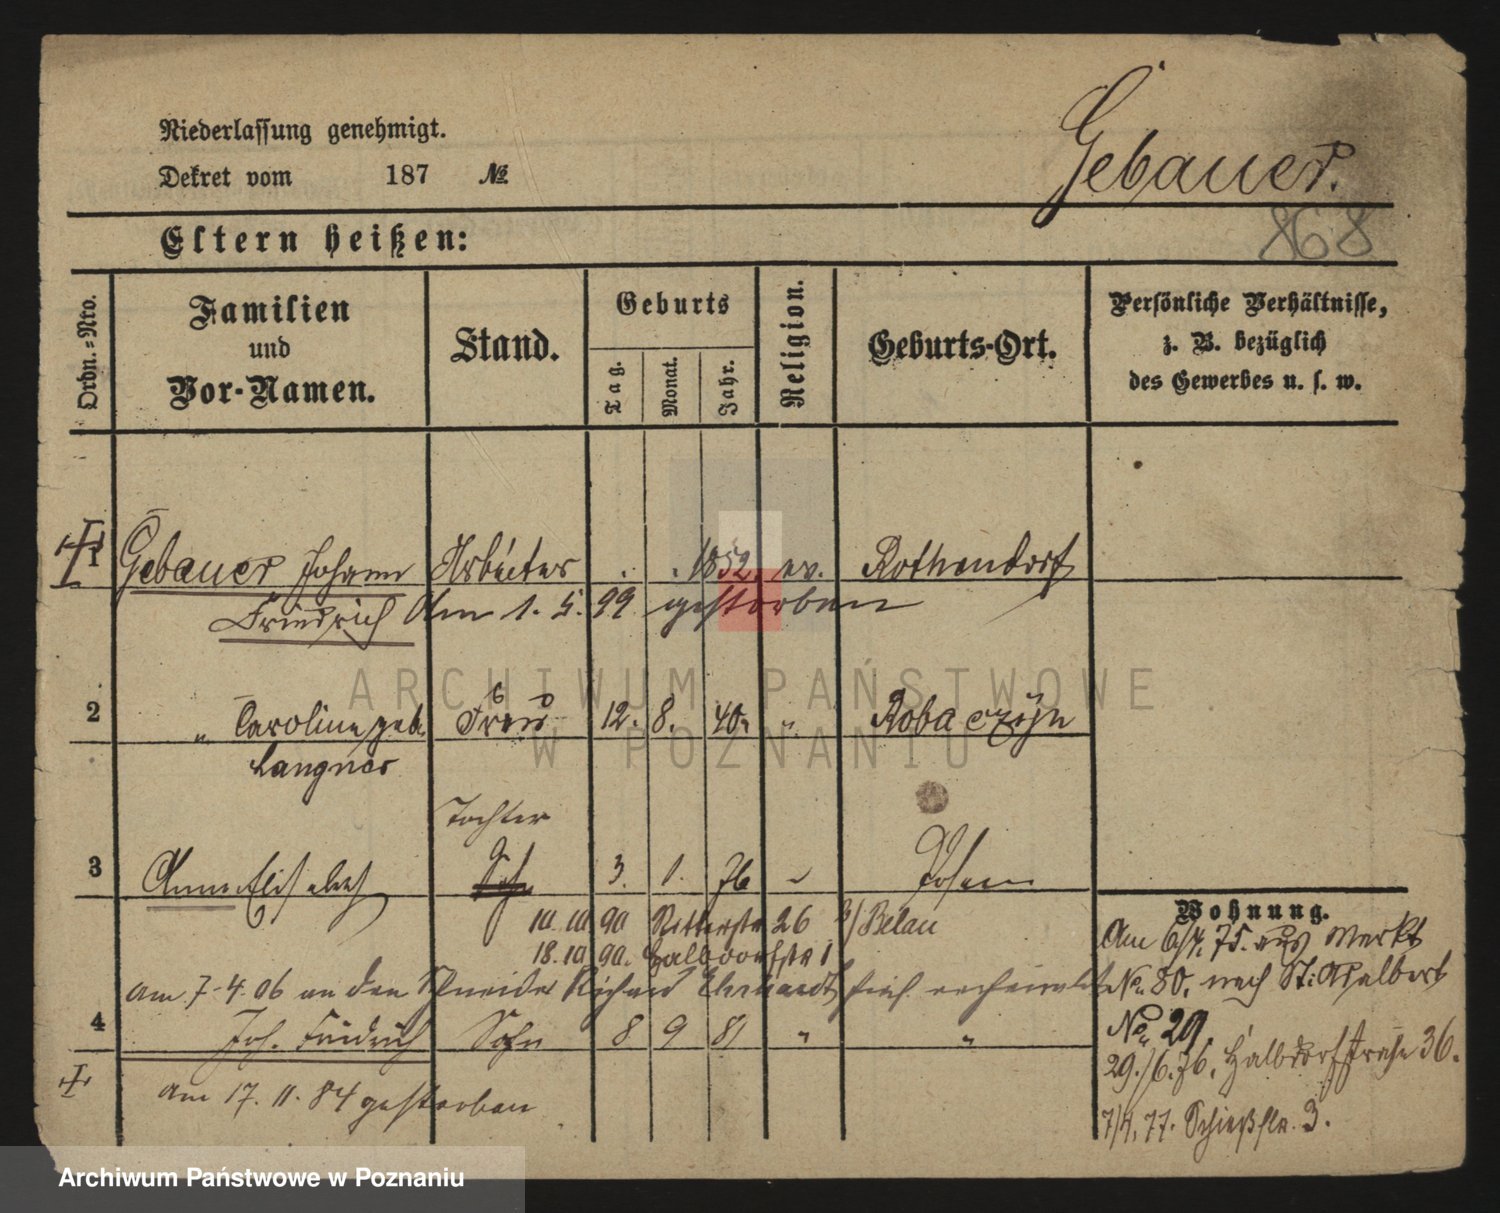 Niederlassung genehmigt.
Dekret vom 187 №
Gebauer.
868
Eltern heißen:
Ordn.-Nro.
Familien
und
Vor-Namen.
Stand.
Geburts
Tag.
Monat.
Jahr.
Religion.
Geburts-Ort.
Persönliche Verhältnisse,
z. B. bezüglich
des Gewerbes u. s. w.
1 Gebauer Johann Arbeiter . . 1852. ev. Rothendorf
Friedrich Am 1. 5. 99 gestorben
2 " Caroline geb. Frau 12. 8. 40. " Robaczyn
Langner
Tochter
3 Anna Elisabeth Sohn 3. 1. 76 " Posen
10. 10 90 Ritterstr 26 b/ Belau
18. 10 90. Halbdorfstr 1
am 7-4. 06 an den Schneider Richard Ehrhardt sich verheiratet
4 Joh. Friedrich Sohn 8 9 81 " "
am 17. 11. 84 gestorben
Wohnung.
Am 6/4. 75. aus Markt
No. 80. nach St: Adalbert
No. 29.
29./6. 76. Halbdorfstraße 36.
7/4. 77. Schießstr. 3.
ARCHIWUM PAŃSTWOWE
W POZNANIU
Archiwum Państwowe w Poznaniu